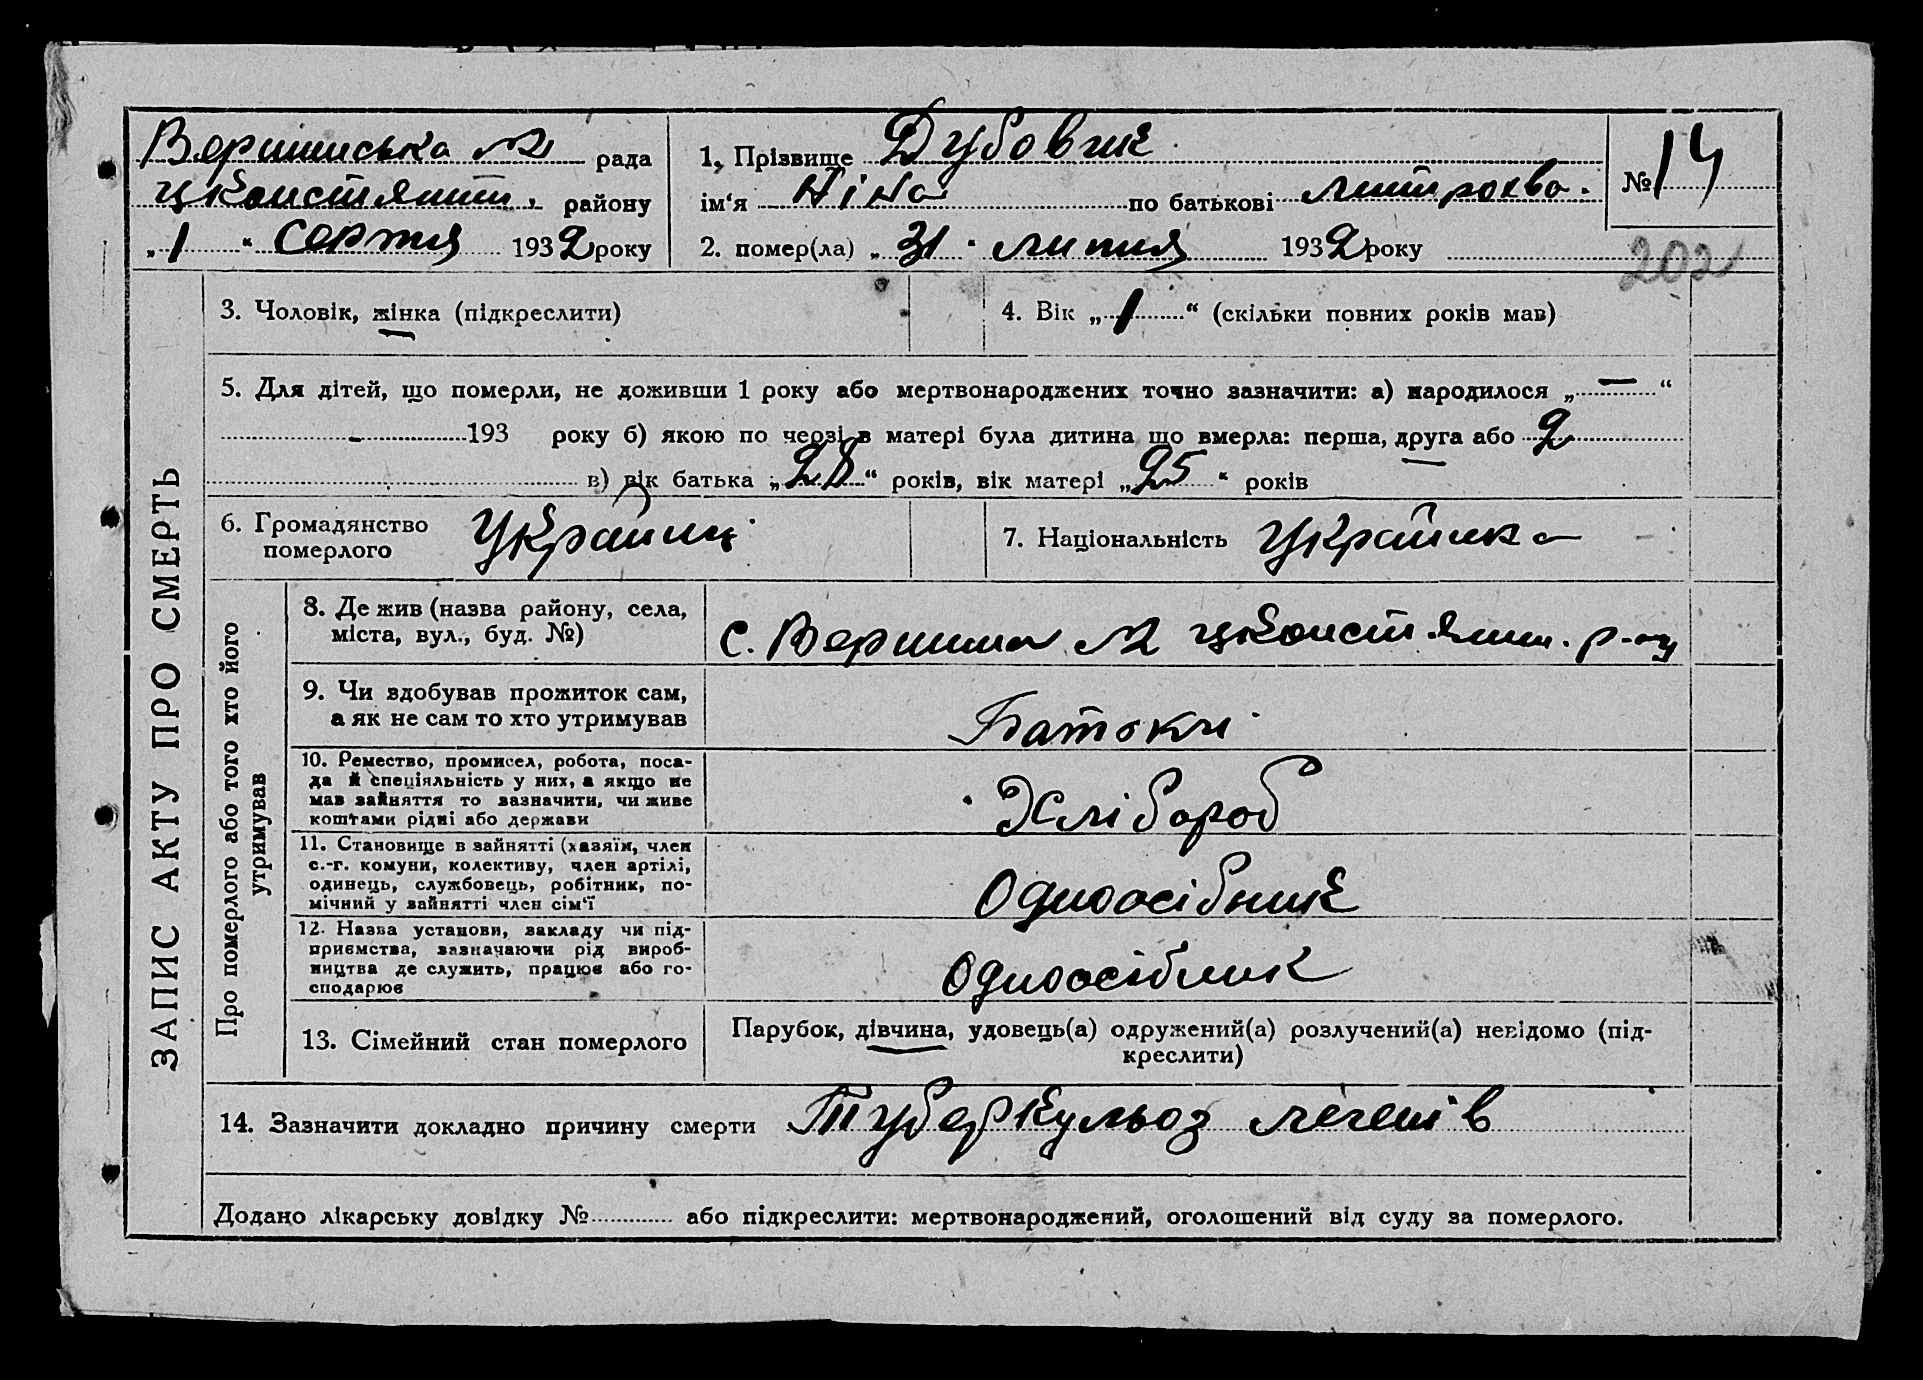 Вершинська №2 рада
цконстянт. району
„1“ Серпня 1932 року
1. Прізвище Дубовик
ім‘я Ніна по батькові митрохва.
2. помер(ла) „31“ липня 1932 року
№ 14
202
3. Чоловік, жінка (підкреслити)
4. Вік „1“ (скільки повних років мав)
5. Для дітей, що померли, не доживши 1 року або мертвонароджених точно зазначити: а) народилося „—“
- 193 року б) якою по черзі в матері була дитина що вмерла: перша, друга або 2
в) вік батька „28“ років, вік матері „25“ років
6. Громадянство
померлого
Україниц
7. Національність Українка
ЗАПИС АКТУ ПРО СМЕРТЬ
Про померлого або того хто його
утримував
8. Де жив (назва району, села,
міста, вул., буд. №)
с. Вершина №2 цконстянт. р-ну
9. Чи здобував прожиток сам,
а як не сам то хто утримував
Батоки
10. Ремество, промисел, робота, поса-
да й спеціяльність у них, а якщо не
мав зайняття то зазначити, чи живе
коштами рідні або держави
Хлібороб
11. Становище в зайнятті (хазяїн, член
с.-г. комуни, колективу, член артілі,
одинець, службовець, робітник, по-
мічний у зайнятті член сім‘ї
Одноосібник
12. Назва установи, закладу чи під-
приємства, зазначаючи рід вироб-
ництва де служить, працює або го-
сподарює
Одноосібник
13. Сімейний стан померлого
Парубок, дівчина, удовець(а) одружений(а) розлучений(а) невідомо (під-
креслити)
14. Зазначити докладно причину смерти Туберкульоз легенів
Додано лікарську довідку № або підкреслити: мертвонароджений, оголошений від суду за померлого.